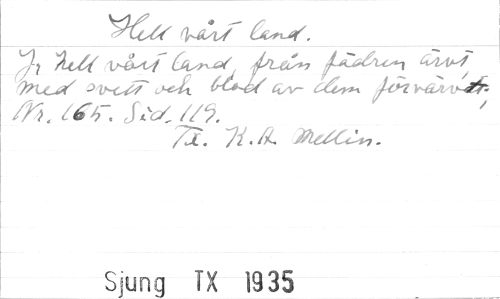 Hell vårt land.
Ja, hell vårt land, från fädren ärvt,
med svett och blod av dem förvärvt;
Nr. 165. Sid. 119.
Tx. K.A. Mellin.
Sjung TX 1935